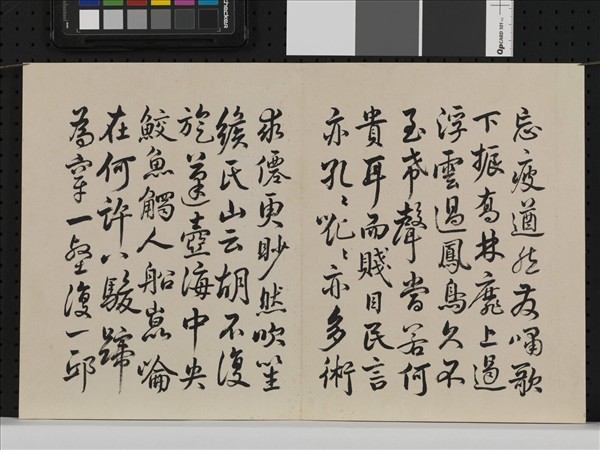 忘疲遒然發嘯歌
下振高林靡上遏
浮雲過鳳鳥久不
至希聲當若何
貴耳而賤目民言
亦孔亦多術
求僊更眇然吹笙
緱氏山云胡不復
旋蓬壺海中央
鮫魚觸人船崑崙
在何許八駿蹄
為穿一壑復一邱
QpCARD 101